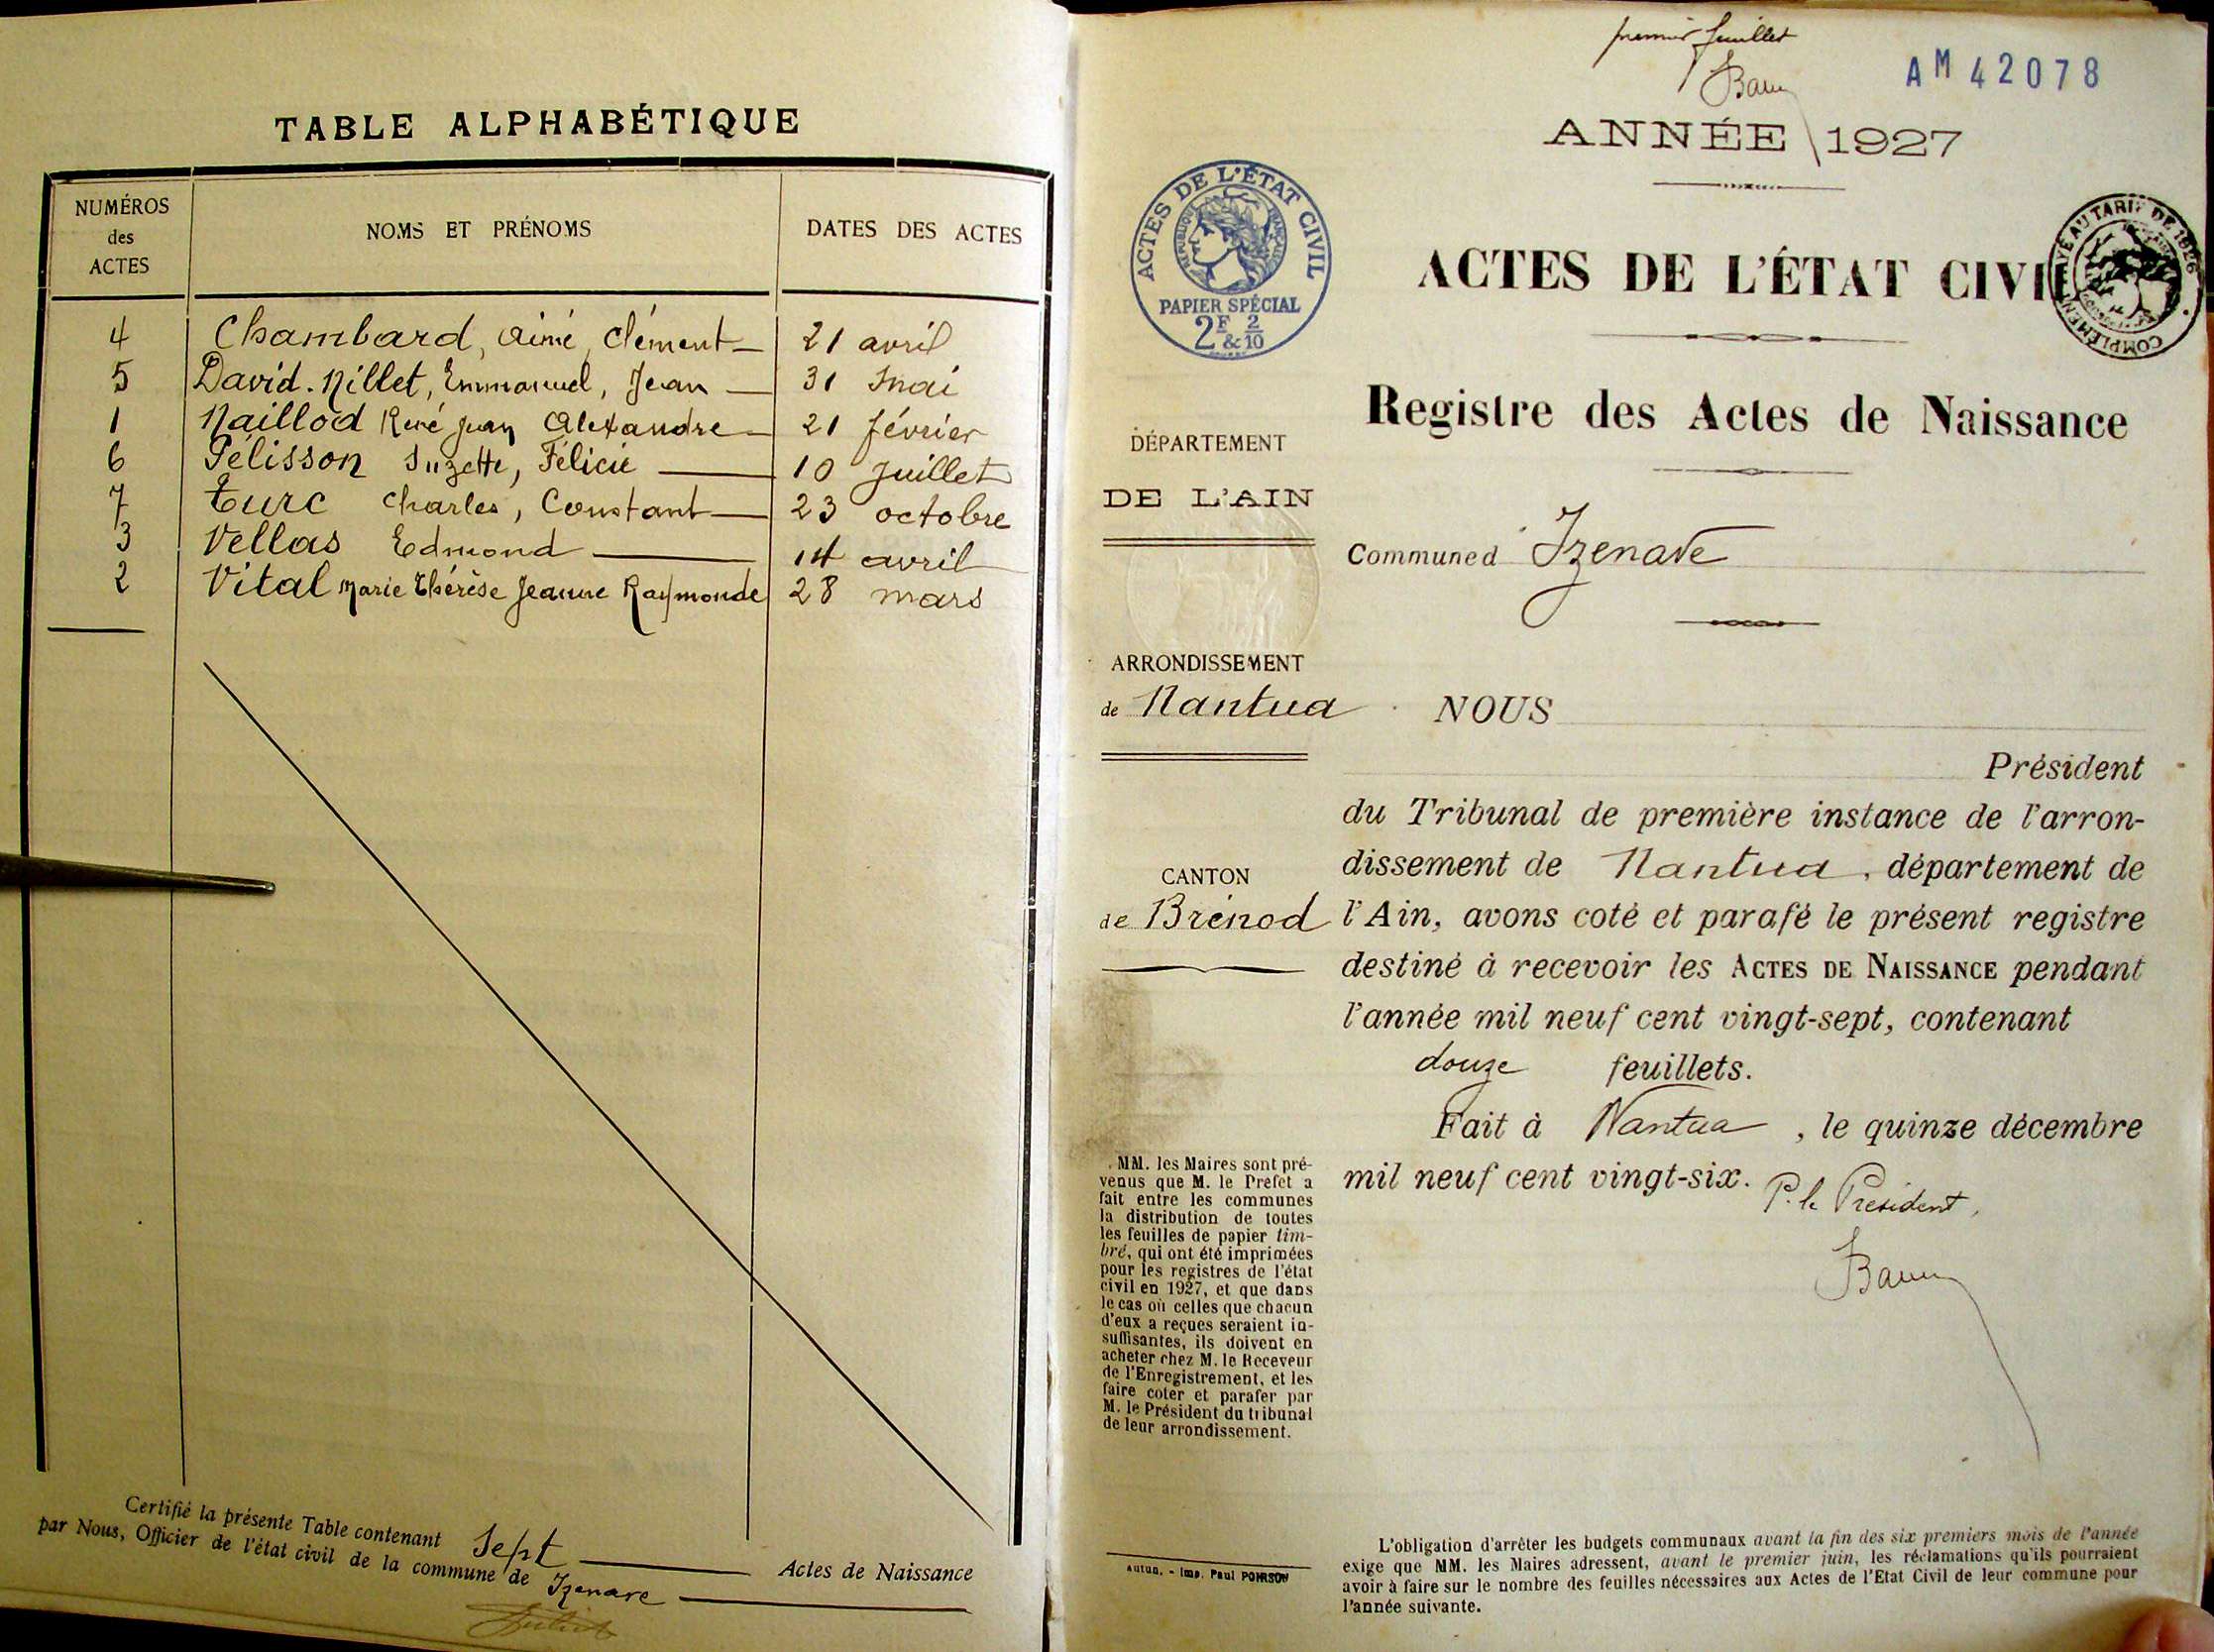 TABLE ALPHABÉTIQUE
NUMÉROS
des
ACTES
NOMS ET PRÉNOMS
DATES DES ACTES
4 Chambard, Aimé, Clément 21 avril
5 David-Nillet, Emmanuel, Jean 31 Mai
1 Naillod René Jean Alexandre 21 février
6 Pélisson Suzette, Félicie 10 Juillet
7 Turc Charles, Constant 23 octobre
3 Vellas Edmond 14 avril
2 Vital Marie Thérèse Jeanne Raymonde 28 mars
Certifié la présente Table contenant Sept Actes de Naissance
par Nous, Officier de l'état civil de la commune de Izenave
premier feuillet
AM 42078
ANNÉE 1927
ACTES DE L'ÉTAT CIVIL
PAPIER SPÉCIAL
2F & 2/10
RÉPUBLIQUE FRANÇAISE
ACTES DE L'ÉTAT CIVI
TARIF DE 1926
COMPLÉMENT
Registre des Actes de Naissance
DÉPARTEMENT
DE L'AIN
Commune d Izenave
ARRONDISSEMENT
de Nantua
NOUS
Président
du Tribunal de première instance de l'arron-
dissement de Nantua, département de
l'Ain, avons coté et parafé le présent registre
destiné à recevoir les ACTES DE NAISSANCE pendant
l'année mil neuf cent vingt-sept, contenant
douze feuillets.
Fait à Nantua, le quinze décembre
mil neuf cent vingt-six.
P. le Président,
CANTON
de Brénod
MM. les Maires sont pré-
venus que M. le Préfet a
fait entre les communes
la distribution de toutes
les feuilles de papier tim-
bré, qui ont été imprimées
pour les registres de l'état
civil en 1927, et que dans
le cas où celles que chacun
d'eux a reçues seraient in-
suffisantes, ils doivent en
acheter chez M. le Receveur
de l'Enregistrement, et les
faire coter et parafer par
M. le Président du tribunal
de leur arrondissement.
Autun. - Imp. Paul POIRSON
L'obligation d'arrêter les budgets communaux avant la fin des six premiers mois de l'année
exige que MM. les Maires adressent, avant le premier juin, les réclamations qu'ils pourraient
avoir à faire sur le nombre des feuilles nécessaires aux Actes de l'Etat Civil de leur commune pour
l'année suivante.